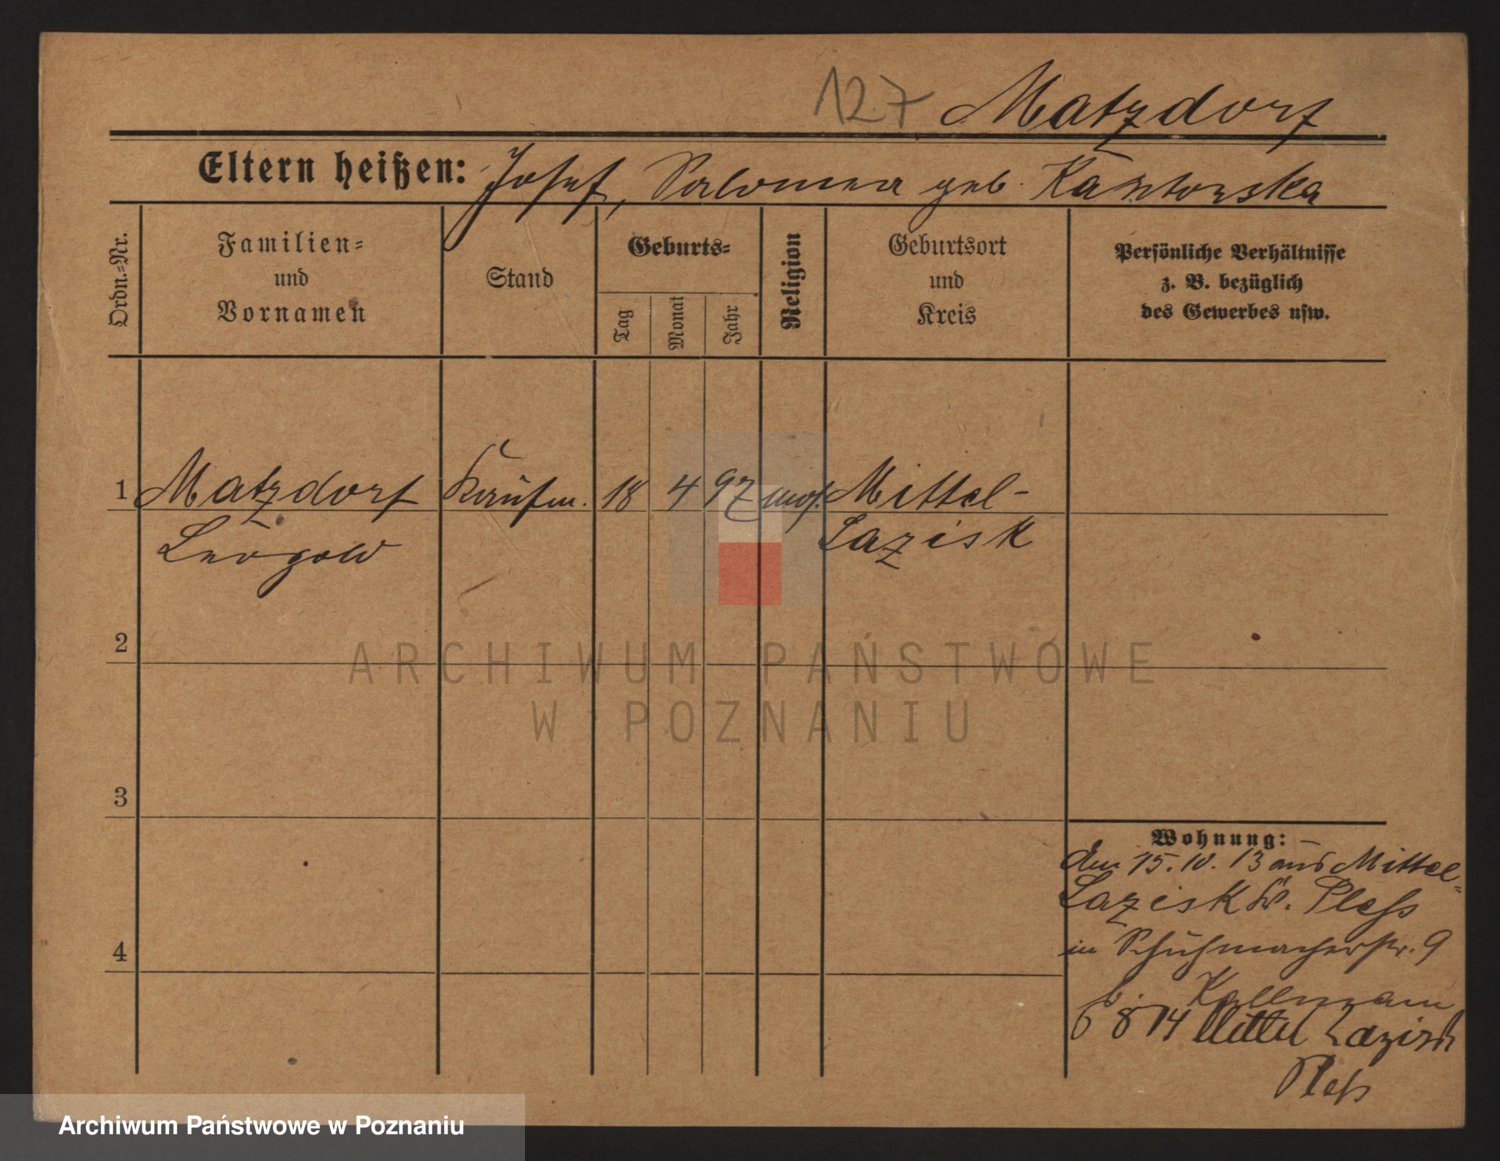 127 Matzdorf
Eltern heißen: Josef, Salomea geb. Kantorska
Ordn.=Nr.
Familien=
und
Vornamen
Stand
Geburts=
Tag
Monat
Jahr
Religion
Geburtsort
und
Kreis
Persönliche Verhältnisse
z. B. bezüglich
des Gewerbes usw.
1 Matzdorf Kaufm. 18 4 97 mos. Mittel-
Leopold Lazisk
2
3
4
Wohnung:
Den 15.10.13 aus Mittel-
Lazisk Kr. Pless
in Schuhmacherstr. 9
b. Kallmann
6 8 14 Mittel Lazisk
Pless
ARCHIWUM PAŃSTWOWE
W POZNANIU
Archiwum Państwowe w Poznaniu